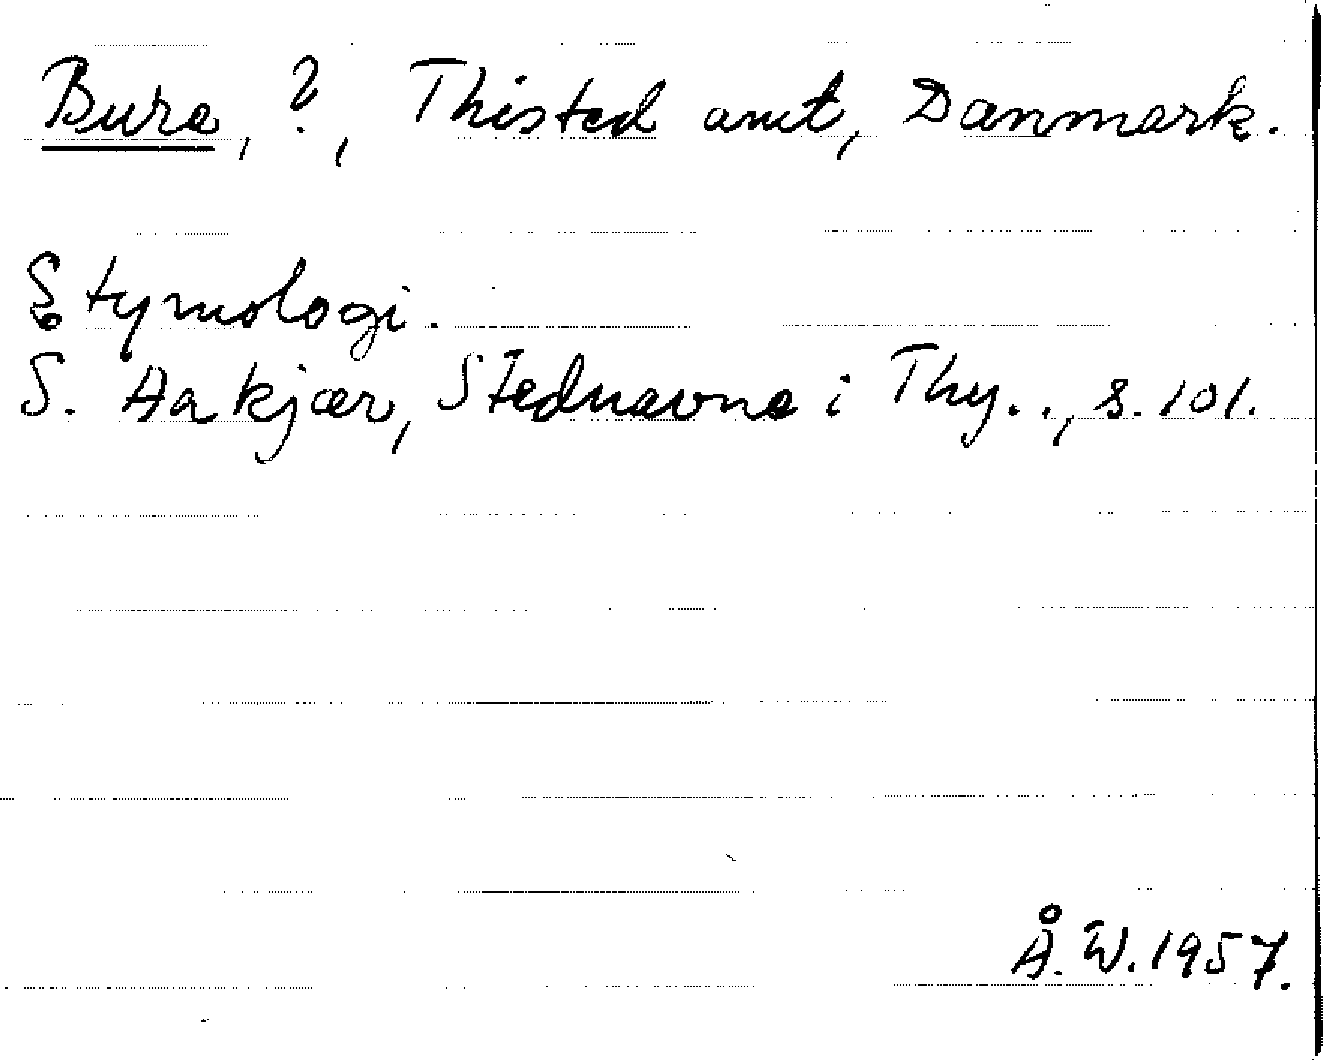 Bure, ?, Thisted amt, Danmark.
Etymologi.
S. Aakjær, Stednavne i Thy.., s. 101.
Å. W. 1957.